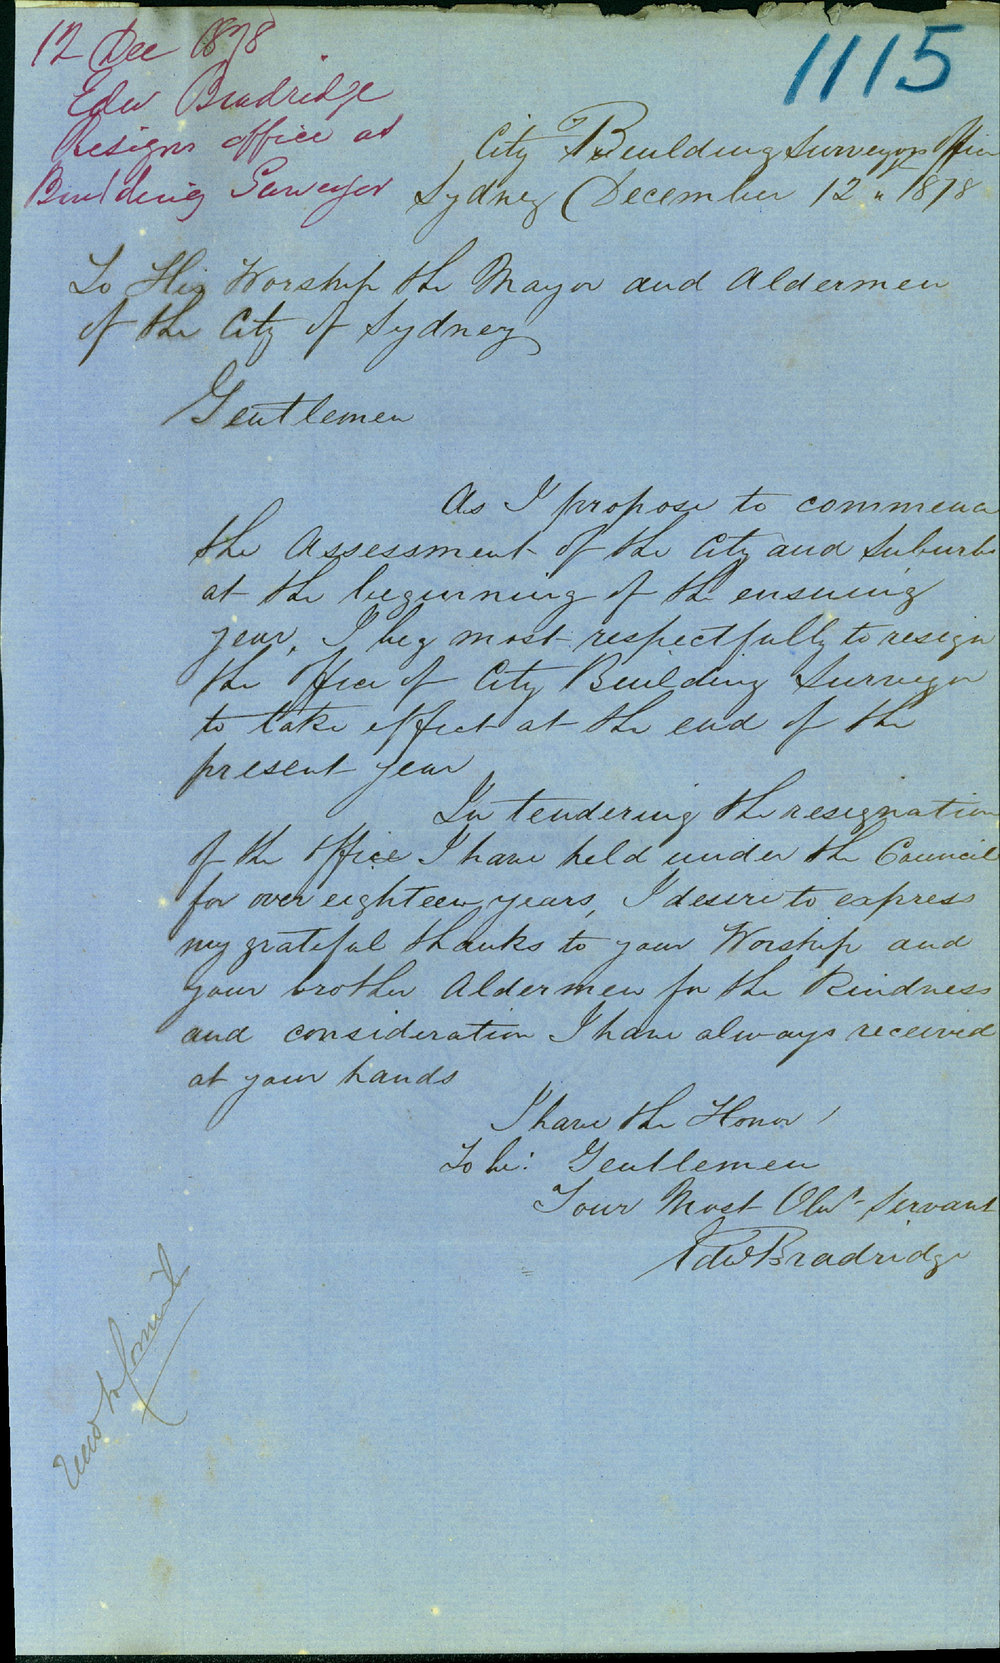 12 Dec 1878
Edw Bradridge
Resigns office as
Building Surveyor
1115
City Building Surveyors Office
Sydney December 12 " 1878
To His Worship the Mayor and Aldermen
of the City of Sydney
Gentlemen
As I propose to commence
the Assessment of the City and Suburbs
at the beginning of the ensuing
year, I beg most respectfully to resign
the Office of City Building Surveyor
to take effect at the end of the
present year
In tendering the resignation
of the Office I have held under the Council
for over eighteen years, I desire to express
my grateful thanks to your Worship and
your brother Aldermen for the Kindness
and consideration I have always received
at your hands
I have the Honor
To be: Gentlemen
Your Most Obt Servant
Edw Bradridge